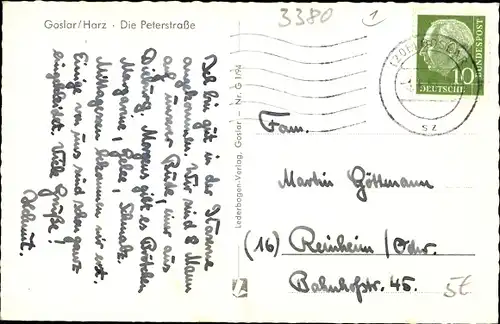 Goslar/Harz · Die Peterstraße
3380
1
Ich bin gut in der Kaserne
angekommen. Wir sind 8 Mann
auf unserer Bude, einer aus
Dieburg. Morgens gibt es Brötchen
Margarine, Gelee, Schmalz.
Mittagessen bekommen wir erst.
Einige von uns sind schon ganz
eingekleidet. Viele Grüße!
Helmut.
Lederbogen-Verlag, Goslar – Nr. G 1/94
DEUTSCHE
BUNDESPOST
10
sz
Fam.
Martin Göttmann
(16) Reinheim/Odw.
Bahnhofstr. 45.